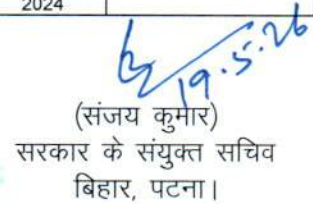 2024
19.5.26
(संजय कुमार)
सरकार के संयुक्त सचिव
बिहार, पटना।